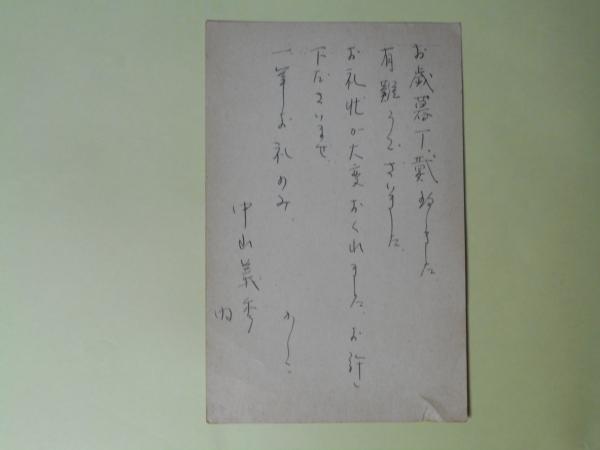 お歳暮下戴致しました
有難うございました
お礼状が大変おくれました、お許し
下さいませ、
一筆お礼のみ、
かしこ
中山義秀
内